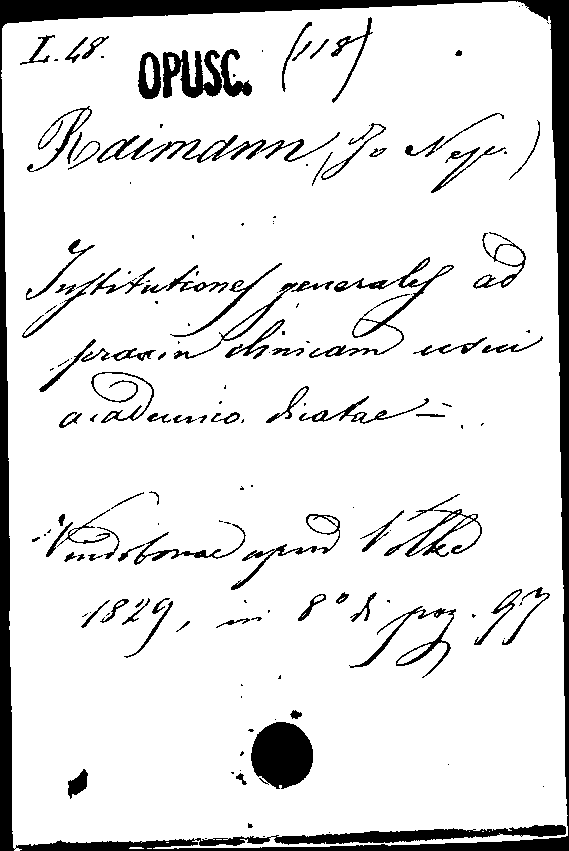 L. 48. OPUSC. (118)
Raimann (Jo Nep.)
Institutiones generales ad
praxin clinicam usui
academico dicatae =
Vindobonae apud Volke
1829, in 8° di pag. 97